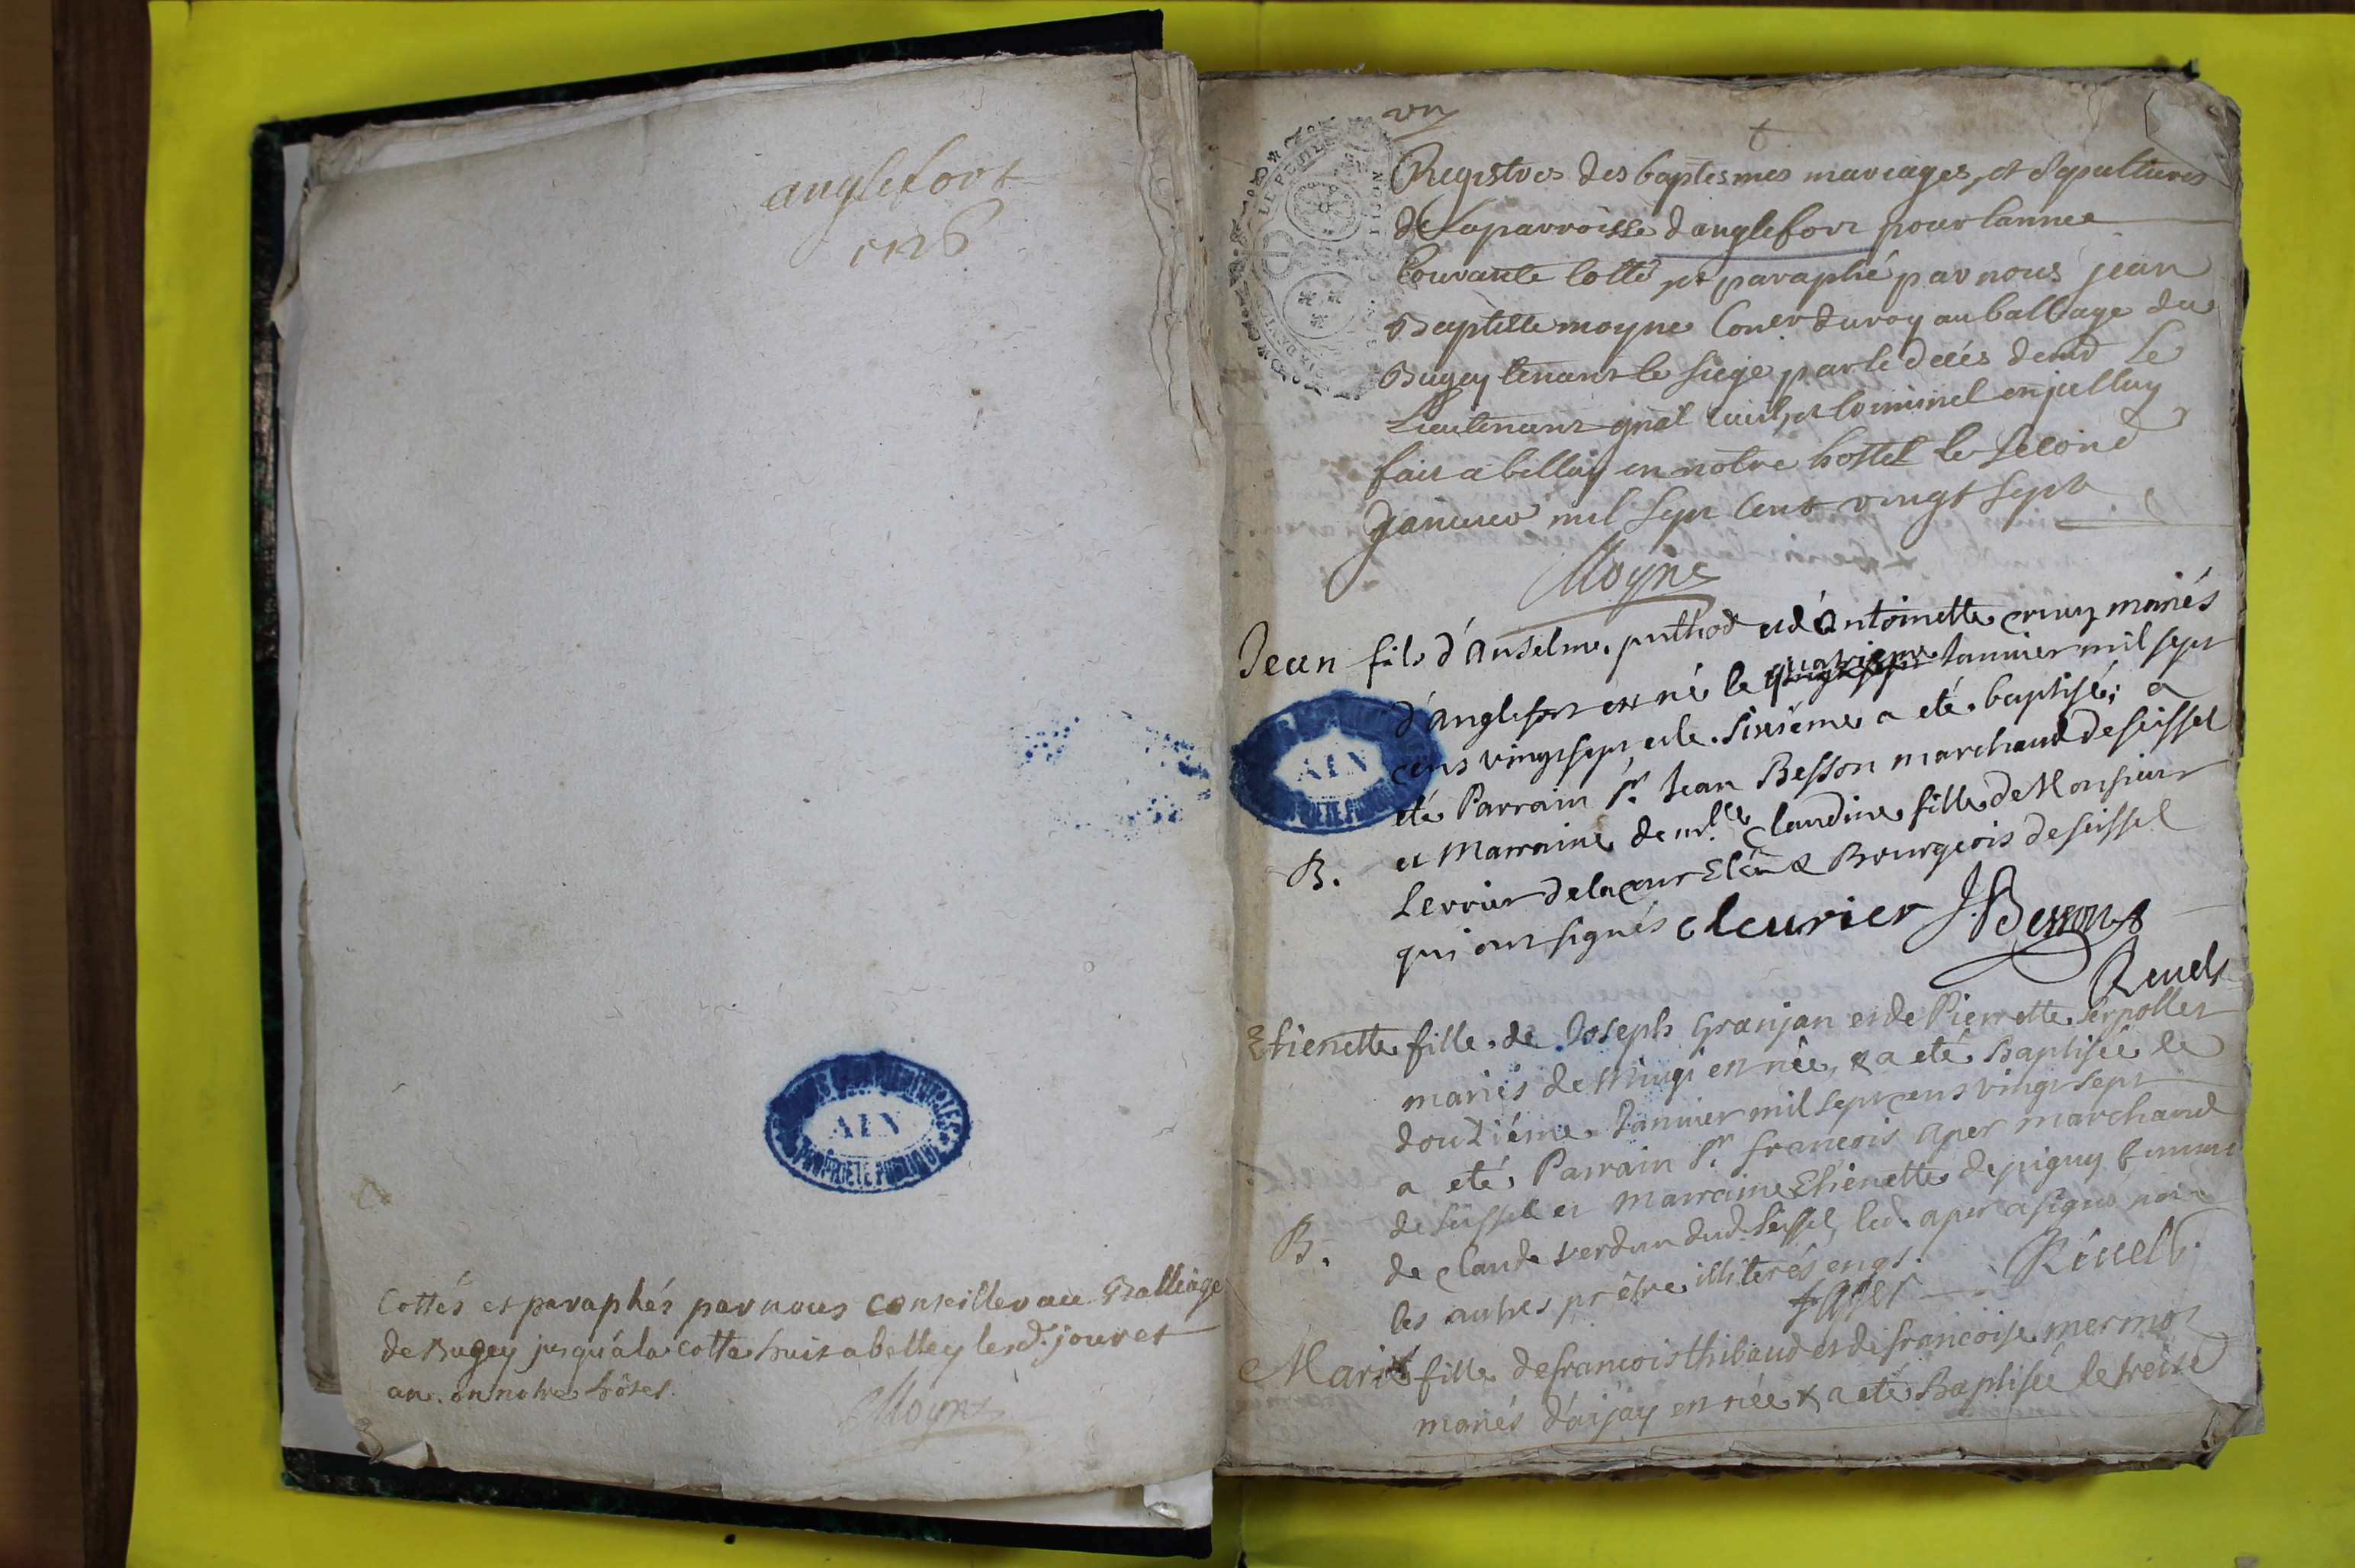 anglefort
1726
AIN
PROPRIETE PUBLIQUE
Cottés et paraphés par nous conseiller au Balliage
de Bugey jusqu'á la cotte huit a belley lesd. jour et
an. en notre hôtel.
Moyne
un
Registres des baptesmes mariages, et sepultures
de La parroisse d'anglefort pour lannee
Courante Cotté et paraphé par nous jean
Baptiste moyne Coner du roy au balliage du
Bugey tenant le siege par le deces de mr Le
Lieutenant gnal Civil, et Criminel en jcelluy
fait a belley en notre hostel le Second
Janvier mil Sept Cent vingt Sept
Moyne
Jean fils d'anselme puthod et d'Antoinette cruy mariés
d'anglefort est né le quatrieme Janvier mil sept
cens vingt sept, et le sixiéme a eté baptisé; a
AIN
eté Parrain Sr. Jean Besson marchand de seissel
et Marraine demlle Claudine fille de Monsieur
B.
Levrier de la cour Bourgeois de seissel
qui ont signés Cleurier J. Besson
Revel
Etienette fille de Joseph Granjan et de Pierrette Serpollet
mariés de Mingi est née, & a eté Baptisée le
douziéme Janvier mil sept cens vingt sept
a eté Parrain Sr. francois aper marchand
de seissel et marraine Etienette depigny femme
B.
de Claude verdun dud. Seissel, led. aper a signé non
les autres pr être illiterés enqs.
f aper Revel
Marie fille de francois thibaud et de francoise mermoz
mariés d'aijay est née & a eté Baptisée le treize